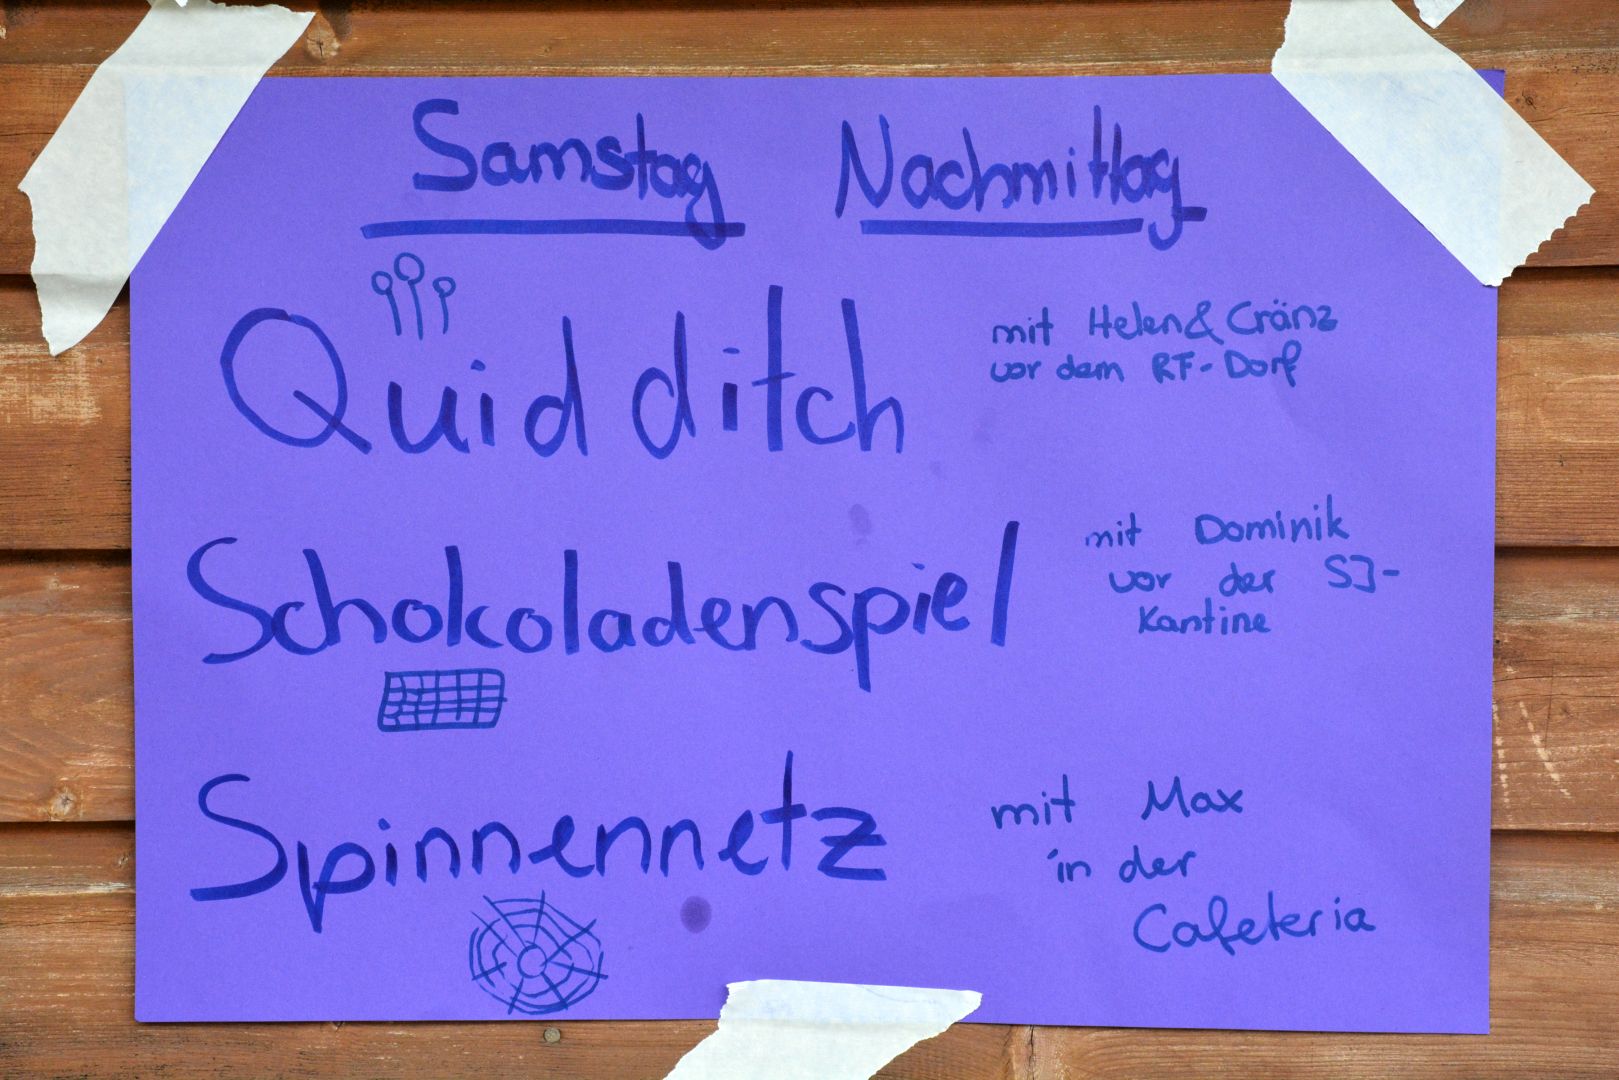 Samstag Nachmittag
Quidditch
mit Helen & Cränz
vor dem RF-Dorf
Schokoladenspiel
mit Dominik
vor der SJ-
Kantine
Spinnennetz
mit Max
in der
Cafeteria